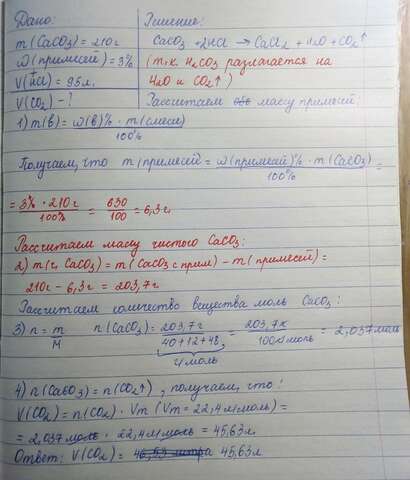 Дано:
m(CaCO3) = 210г
ω(примесей) = 3%
V(HCl) = 95л.
V(CO2) - ?
Решение:
CaCO3 + 2HCl → CaCl2 + H2O + CO2↑
(т.к. H2CO3 разлагается на
H2O и CO2↑)
Рассчитаем массу примесей.
1) m(в) = ω(в)% · m(смеси)
100%
Получаем, что m(примесей) = ω(примесей)% · m(CaCO3) =
100%
= 3% · 210г = 630 = 6,3г.
100% 100
Рассчитаем массу чистого CaCO3:
2) m(ч. CaCO3) = m(CaCO3 с прим) - m(примесей) =
210г - 6,3г = 203,7г
Рассчитаем количество вещества моль CaCO3:
3) n = m n(CaCO3) = 203,7г = 203,7г = 2,037моль
M 40+12+48 100г/моль
г/моль
4) n(CaCO3) = n(CO2↑), получаем, что:
V(CO2) = n(CO2) · Vm (Vm = 22,4л/моль) =
= 2,037моль · 22,4л/моль = 45,63л.
Ответ: V(CO2) = 45,63л